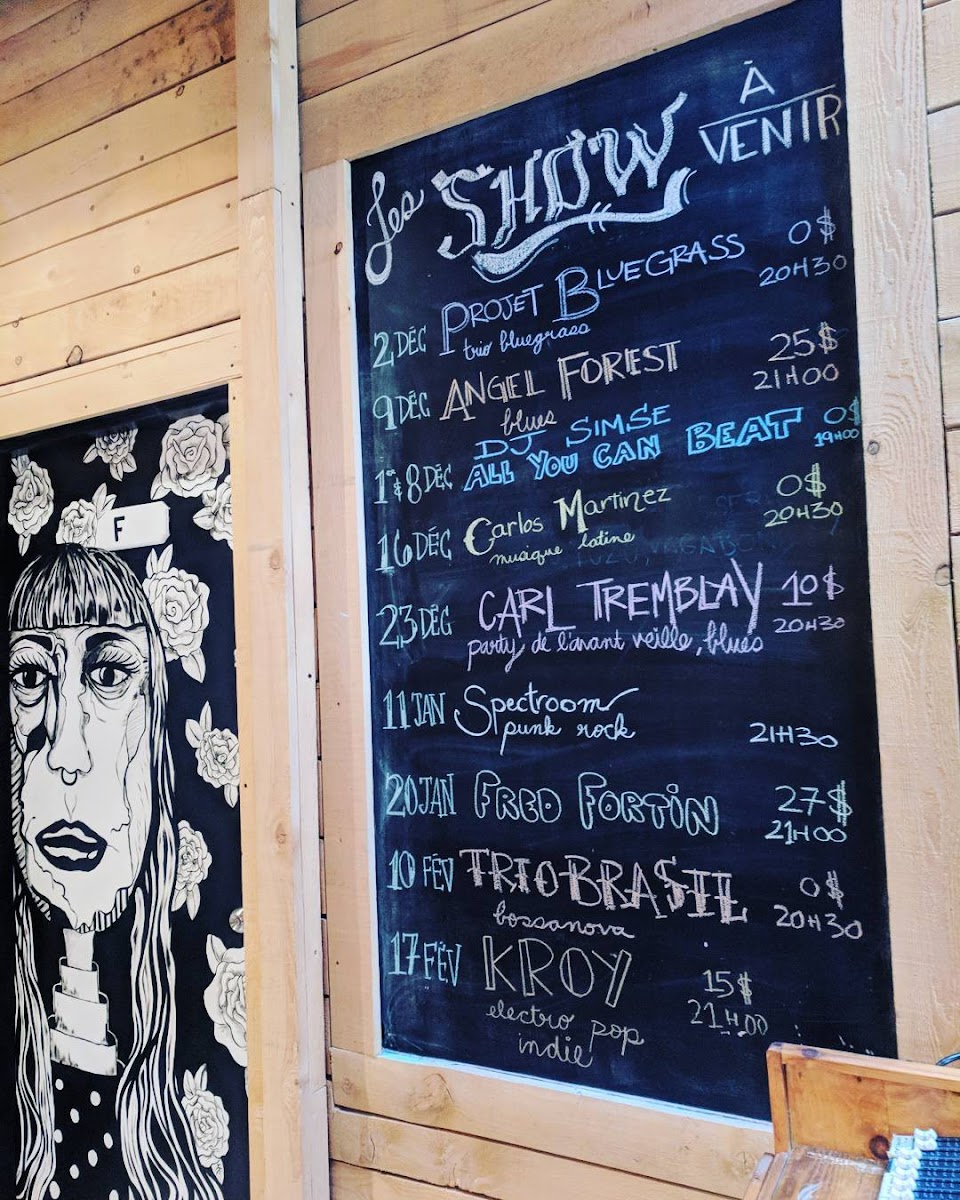 Les SHOW À VENIR
2 DÉC PROJET BLUEGRASS 0$
trio bluegrass 20H30
9 DÉC ANGEL FOREST 25$
blues 21H00
DJ SIMSE
1er & 8 DÉC ALL YOU CAN BEAT 0$
19H00
16 DÉC Carlos Martinez 0$
musique latine 20H30
23 DÉC CARL TREMBLAY 10$
party de l'avant veille, blues 20H30
11 JAN Spectroom
punk rock 21H30
20 JAN FRED FORTIN 27$
21H00
10 FÉV TRIO BRASIL 0$
bossanova 20H30
17 FÉV KROY 15$
electro pop 21H00
indie
F